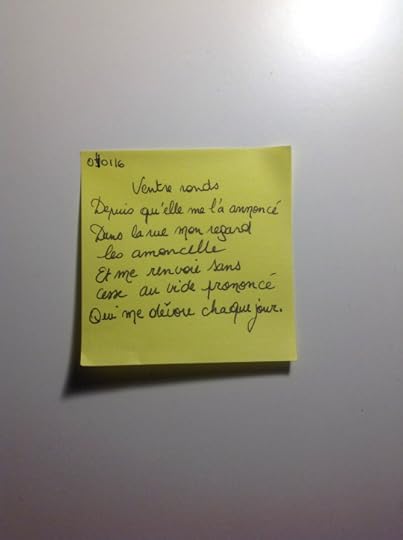 070116
Ventre ronds
Depuis qu'elle me l'a annoncé
Dans la rue mon regard
les amoncelle
Et me renvoie sans
cesse au vide prononcé
Qui me dévore chaque jour.